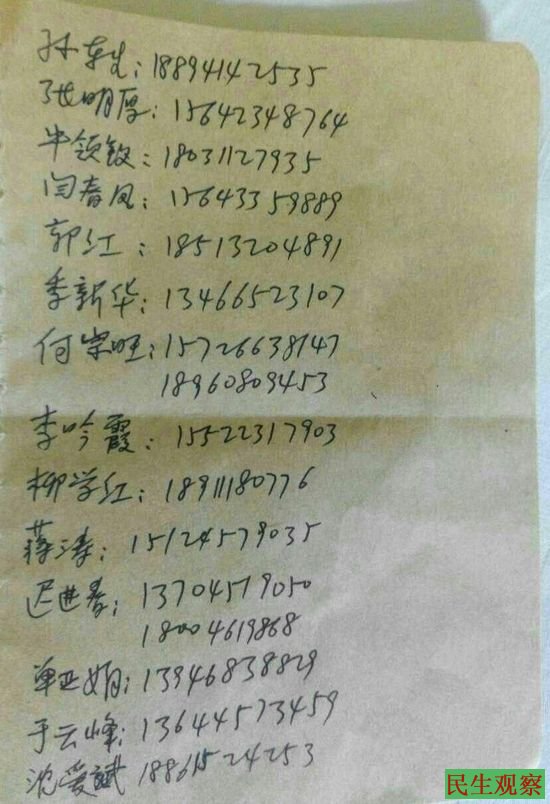 孙东生：18894142535
张明厚：15642348764
牛领钗：18031127935
闫春凤：15643359889
郭江：18513204891
季新华：13466523107
何宗旺：15726638147
18960809453
李吟霞：15522317903
柳学红：18911180776
蒋涛：15124579035
迟进春：13704519050
18004619868
单亚娟：13946838829
于云峰：13644573459
沈爱斌 18861524253
民生观察